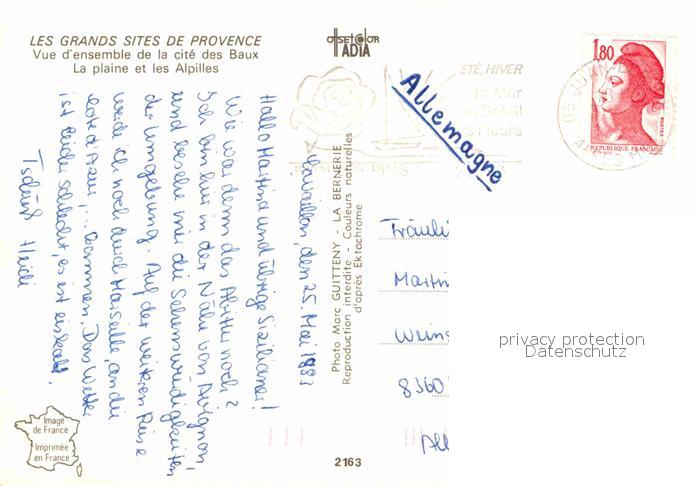 LES GRANDS SITES DE PROVENCE
Vue d'ensemble de la cité des Baux
La plaine et les Alpilles
offset color
IADIA
1,80
POSTES
REPUBLIQUE FRANÇAISE
ÉTÉ, HIVER
la Mer
le Soleil
les Fleurs
PINS
06 JUAN
Allemagne
Cavaillon, den 25. Mai 1983
Hallo Martina und übrige Sizilianer!
Wie war denn das Abitur noch?
Ich bin hier in der Nähe von Avignon,
und besehe mir die Sehenswürdigkeiten
der Umgebung. Auf der weiteren Reise
werde ich noch durch Marseille, an die
Cote d'Azur, ... kommen. Das Wetter
ist leider schlecht, es ist eiskalt.
Tschüß Heidi
Photo Marc GUITTENY - LA BERNERIE
Reproduction interdite - Couleurs naturelles
d'après Ektachrome
Fräulei
Martin
Weins
8360
All
privacy protection
Datenschutz
Image
de France
Imprimée
en France
2163